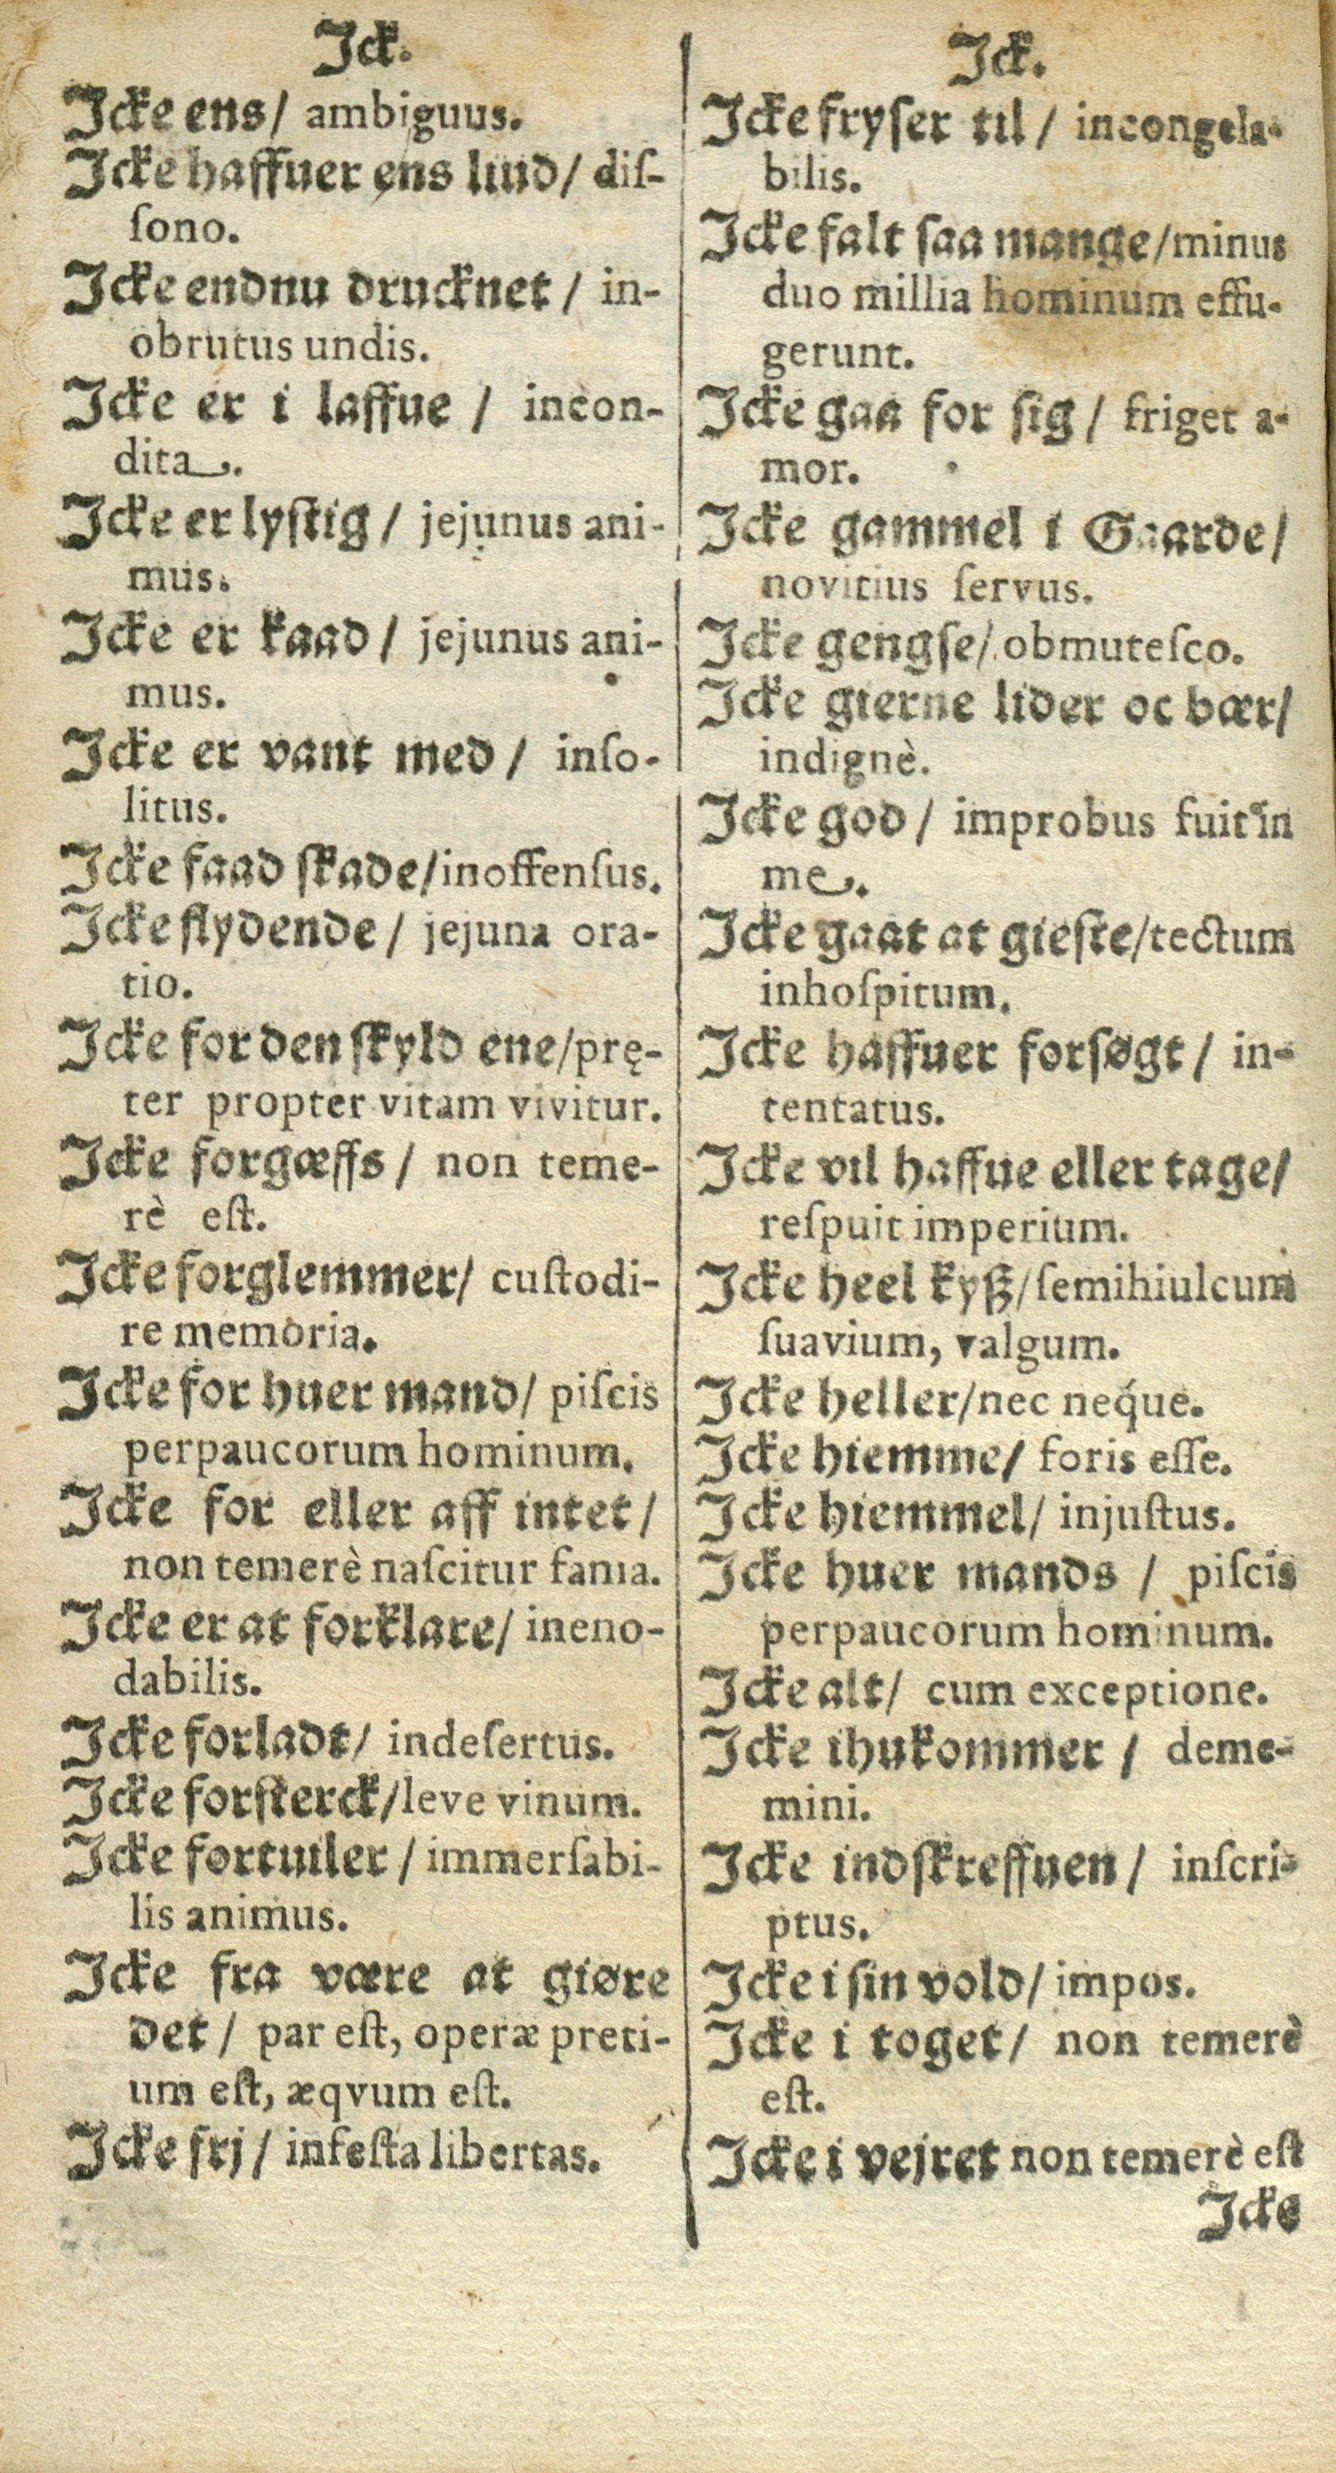 Jck.
Jcke ens/ ambiguus.
Jcke haffuer ens liud/ diſ-
ſono.
Jcke endnu drucknet / in-
obrutus undis.
Jcke er i laffue / incon-
dita.
Jcke er lyſtig / jejunus ani-
mus.
Jcke er kaad / jejunus ani-
mus.
Jcke er vant med / inſo-
litus.
Jcke faad ſkade/inoffenſus.
Jcke flydende / jejuna ora-
tio.
Jcke for den ſkyld ene/prę-
ter propter vitam vivitur.
Jcke forgæffs / non teme-
rè eſt.
Jcke forglemmer/ cuſtodi-
re memoria.
Jcke for huer mand/ piſcis
perpaucorum hominum.
Jcke for eller aff intet /
non temerè naſcitur fama.
Jcke er at forklare/ ineno-
dabilis.
Jcke forladt/ indeſertus.
Jcke forſterck/leve vinum.
Jcke fortuiler / immerſabi-
lis animus.
Jcke fra være at giøre
det / par eſt, operæ preti-
um eſt, æqvum eſt.
Jcke frj / infeſta libertas.
Jck.
Jcke fryſer til / incongela-
bilis.
Jcke falt ſaa mange/minus
duo millia hominum effu-
gerunt.
Jcke gaa for ſig / friget a-
mor.
Jcke gammel i Gaarde/
novitius ſervus.
Jcke gengſe/ obmuteſco.
Jcke gierne lider oc bær/
indignè.
Jcke god / improbus fuit in
me.
Jcke gaat at gieſte/tectum
inhoſpitum.
Jcke haffuer forſøgt / in-
tentatus.
Jcke vil haffue eller tage/
reſpuit imperium.
Jcke heel kyß/ſemihiulcum
ſuavium, valgum.
Jcke heller/nec neq́ue.
Jcke hiemme/ foris eſſe.
Jcke hiemmel/ injuſtus.
Jcke huer mands / piſcis
perpaucorum hominum.
Jcke alt/ cum exceptione.
Jcke ihukommer / deme-
mini.
Jcke indſkreffuen / inſcri-
ptus.
Jcke i ſin vold/ impos.
Jcke i toget/ non temerè
eſt.
Jcke i vejret non temerè eſt
Jcke